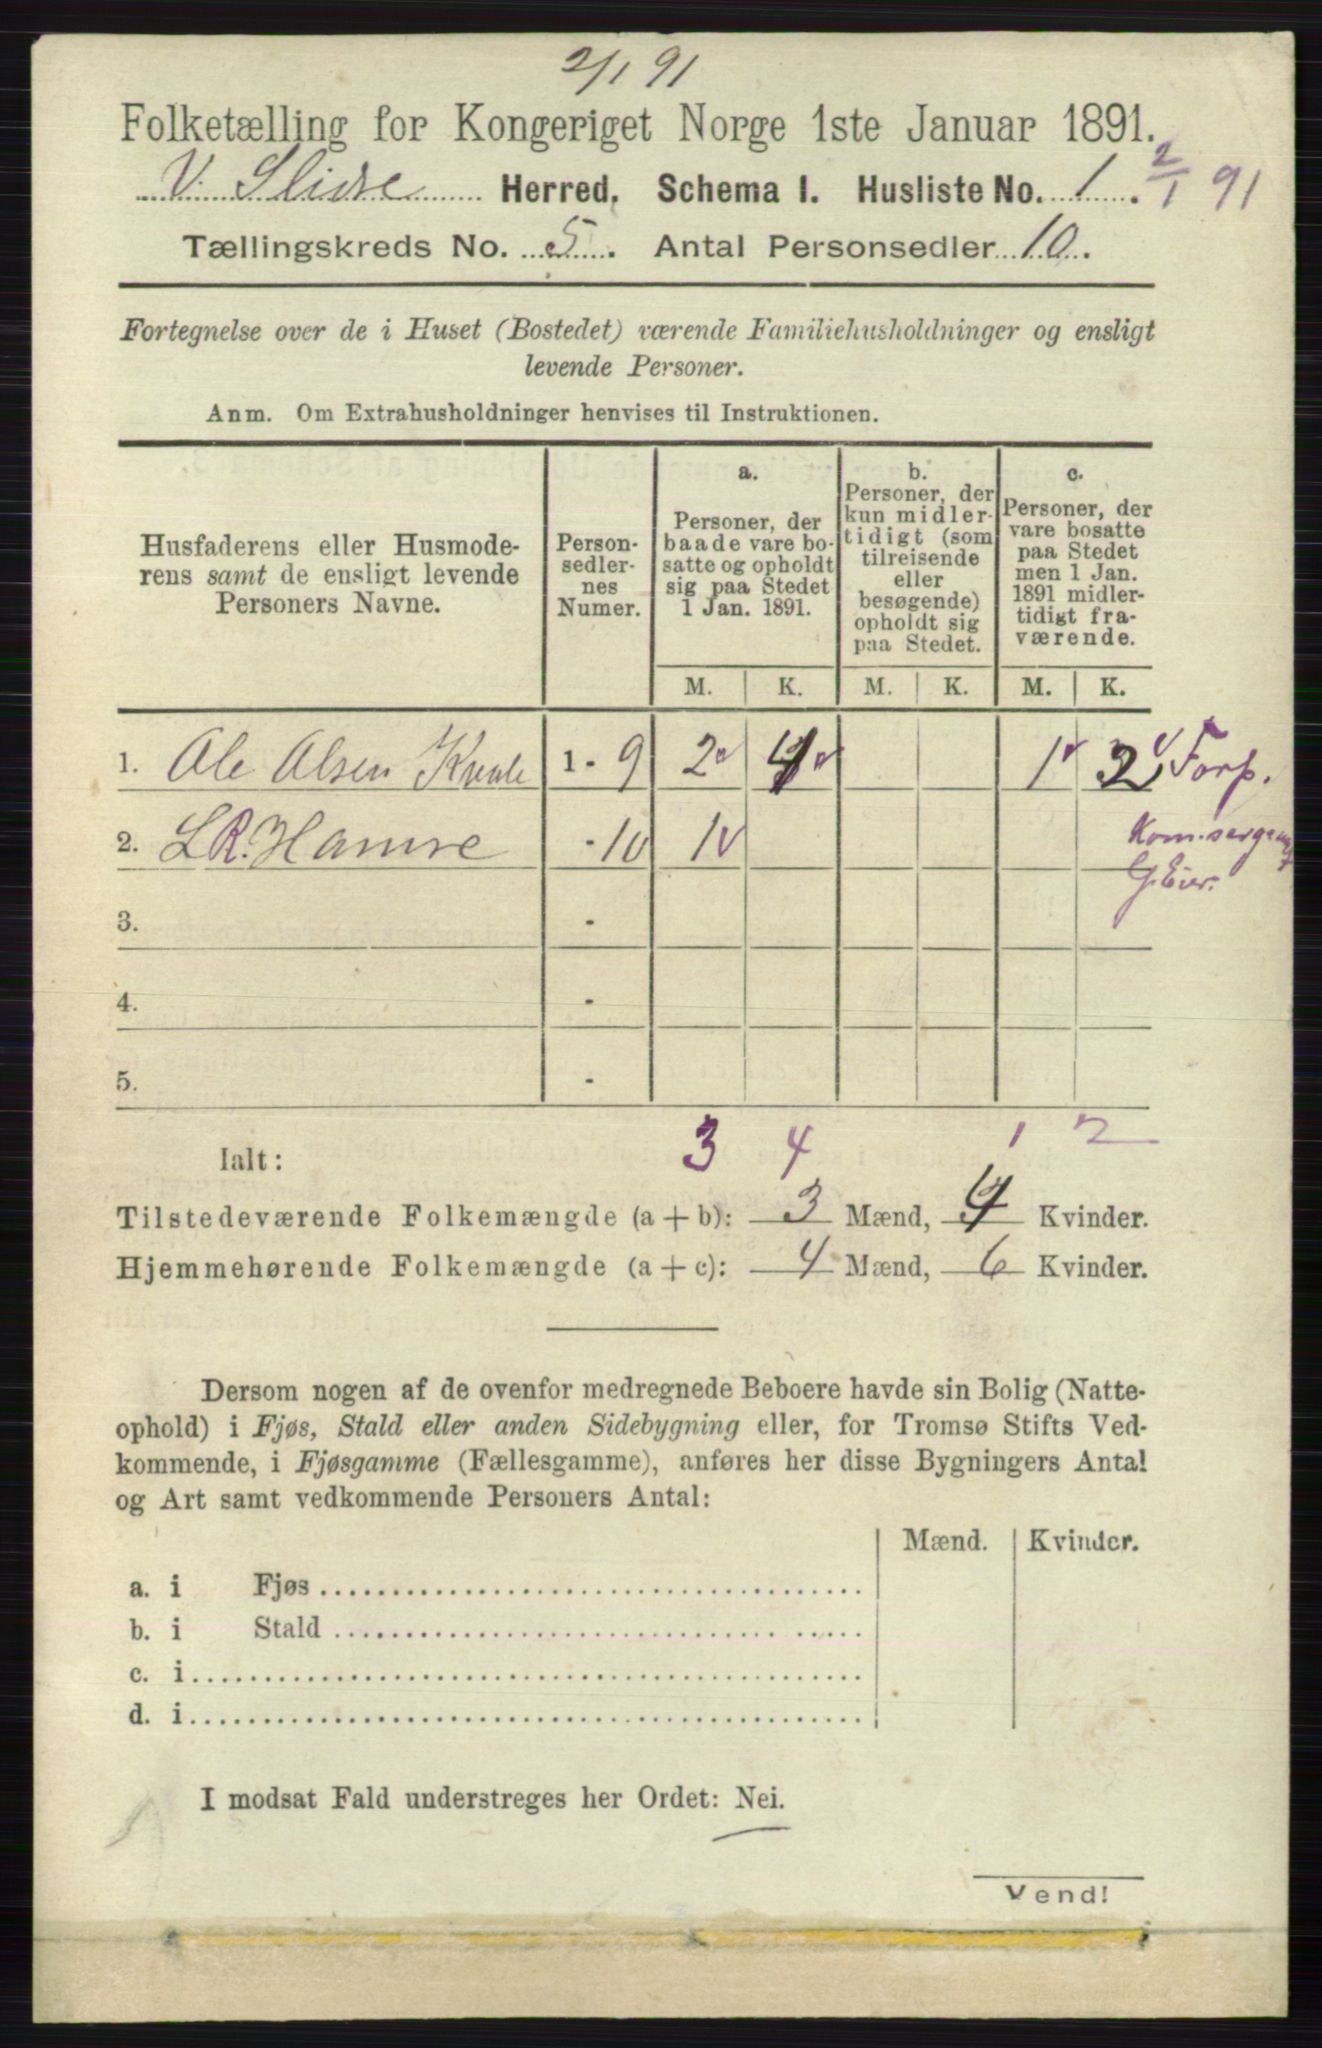 2/1 91
Folketælling for Kongeriget Norge 1ste Januar 1891.
V. Slidre Herred. Schema I. Husliste No. 1. 2/1 91
Tællingskreds No. 5. Antal Personsedler 10.
Fortegnelse over de i Huset (Bostedet) værende Familiehusholdninger og ensligt
levende Personer.
Anm. Om Extrahusholdninger henvises til Instruktionen.
Husfaderens eller Husmode-
rens samt de ensligt levende
Personers Navne.
Person-
sedler-
nes
Numer.
a.
Personer, der
baade vare bo-
satte og opholdt
sig paa Stedet
1 Jan. 1891.
b.
Personer, der
kun midler-
tidigt (som
tilreisende
eller
besøgende)
opholdt sig
paa Stedet.
c.
Personer, der
vare bosatte
paa Stedet
men 1 Jan.
1891 midler-
tidigt fra-
værende.
M. K. M. K. M. K.
1. Ole Olsen Kvale 1 - 9 2 4 1 2 Forp.
2. L R. Hamre - 10 1 Kom.sergeant
G. Eier.
3. -
4. -
5. -
3 4 1 2
Ialt:
Tilstedeværende Folkemængde (a + b): 3 Mænd, 4 Kvinder.
Hjemmehørende Folkemængde (a + c): 4 Mænd, 6 Kvinder.
Dersom nogen af de ovenfor medregnede Beboere havde sin Bolig (Natte-
ophold) i Fjøs, Stald eller anden Sidebygning eller, for Tromsø Stifts Ved-
kommende, i Fjøsgamme (Fællesgamme), anføres her disse Bygningers Antal
og Art samt vedkommende Personers Antal:
Mænd. Kvinder.
a. i Fjøs
b. i Stald
c. i
d. i
I modsat Fald understreges her Ordet: Nei.
Vend!